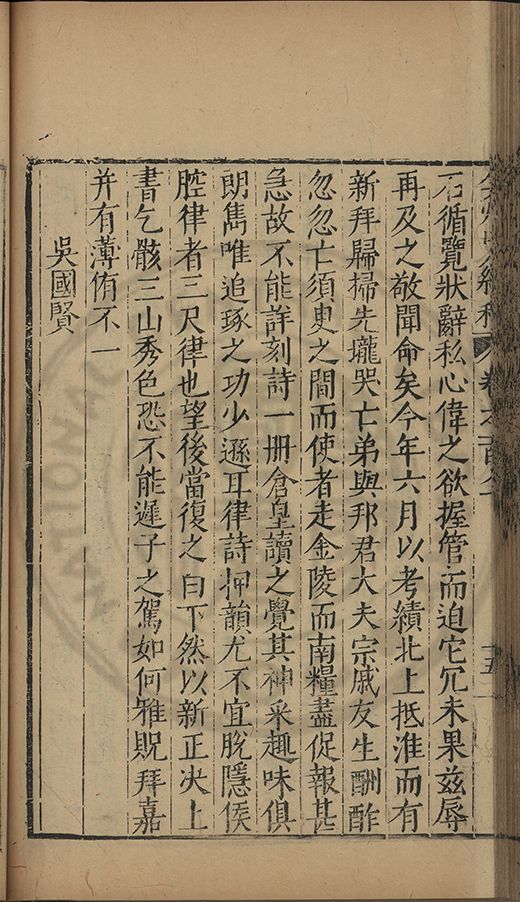 石循覽狀辭私心偉之欲握管而迫它冗未果茲辱
再及之敬聞命矣今年六月以考績北上抵淮而有
新拜歸掃先壠哭亡弟與邦君大夫宗戚友生酬酢
忽忽亡須臾之間而使者走金陵而南糧盡促報甚
急故不能詳刻詩一冊倉皇讀之覺其神采趣味俱
朗雋唯追琢之功少遜耳律詩押韻尤不宜脫隱侯
腔律者三尺律也望後當復之白下然以新正决上
書乞骸三山秀色恐不能遲子之駕如何雅貺拜嘉
并有薄侑不一
吳國賢